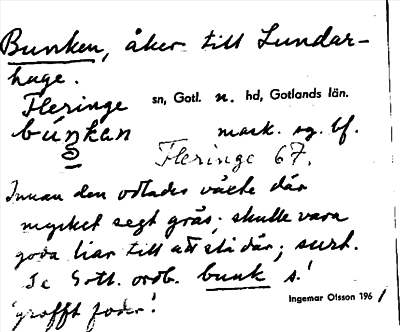 Bunken, åker till Lundar-
hage.
Fleringe sn, Gotl. n. hd, Gotlands län.
búŋkan mask. sg. bf.
Fleringe 67.
Innan den odlades växte där
mycket segt gräs; skulle vara
goda liar till att slå där; surt.
Se Gotl. ordb. bunk s.'
'grofft foder'.
Ingemar Olsson 196